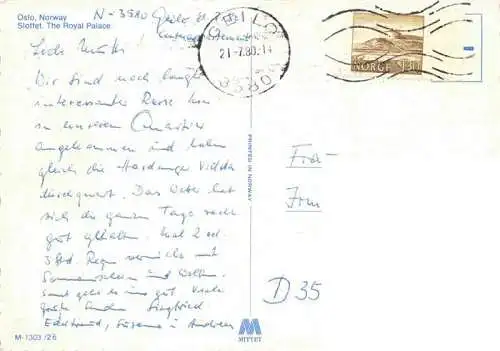 Oslo, Norway
Slottet. The Royal Palace.
N-3580 Geilo 21.7.
GEILO
21-7.80.-14
NORGE
NORGE 130
Wir sind nach langer
interessanter Reise hier
in unserem Quartier
angekommen und haben
gleich die Hardanger Vidda
durchquert. Das Wetter hat
sich die ganzen Tage recht
gut gehalten. mal 2 od.
3 Std Regen vermischt mit
Sonnenschein und Wolken.
Sonst geht es uns gut. Viele
Grüße senden Siegfried
Edeltraud, Susanne u. Andreas
PRINTED IN NORWAY
D 35
M-1303/26
MITTET